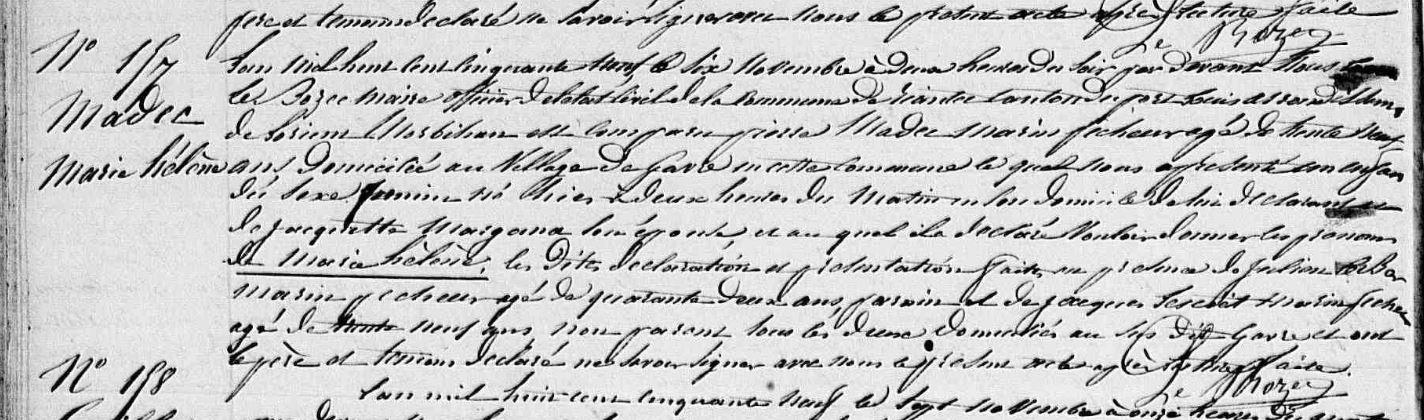 père et témoins déclaré ne savoir signer avec nous le présent acte après lecture faite
Le Rozec
N° 157
Madec
Marie hélène
L'an mil huit cent cinquante neuf, le six novembre à deux heures du soir par devant Nous
Le Rozec Maire officier de l'état civil de la commune de riantec canton du port Louis arrond
de Lorient Morbihan est comparu pierre Madec marin pêcheur agé de trente neuf
ans, domicilié au Village de Gavre en cette commune le quel nous a présenté un enfan
du sexe feminin né hier à deux heures du Matin en son domicile de lui déclarant et
de jacquette Margana son épouse et au quel il a déclaré Vouloir donner les prenoms
de Marie hélène, les dites déclaration et présentation faites en présence de julien
Marin pecheur agé de quarante deux ans, parain et de jacques marin pecheur
agé de trente neuf ans non parent tous les deux domiciliés au dit Gavre et ont
le père et temoins déclaré ne savoir signer avec nous le présent acte après lecture faite.
Le Rozec
N° 158
L'an mil huit cent cinquante neuf le sept novembre à onze heures du